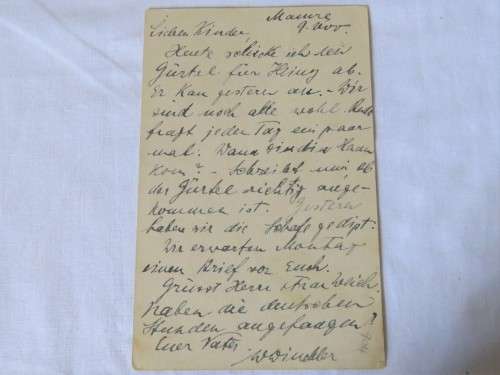 9. Nov.
Lieben Kinder,
Heute schicke ich den
Gürtel für Heinz ab.
Er kam gestern an. - Wir
sind noch alle wohl
fragt jeden Tag ein paar-
mal: Wann
kom? - Schreibt mir ob
der Gürtel richtig ange-
kommen ist. Gestern
haben wir die Schafe gedipt.
Wir erwarten Montag
einen Brief von Euch.
Grüsst Herrn + Frau
Haben die deutschen
Stunden angefangen?
Euer Vater